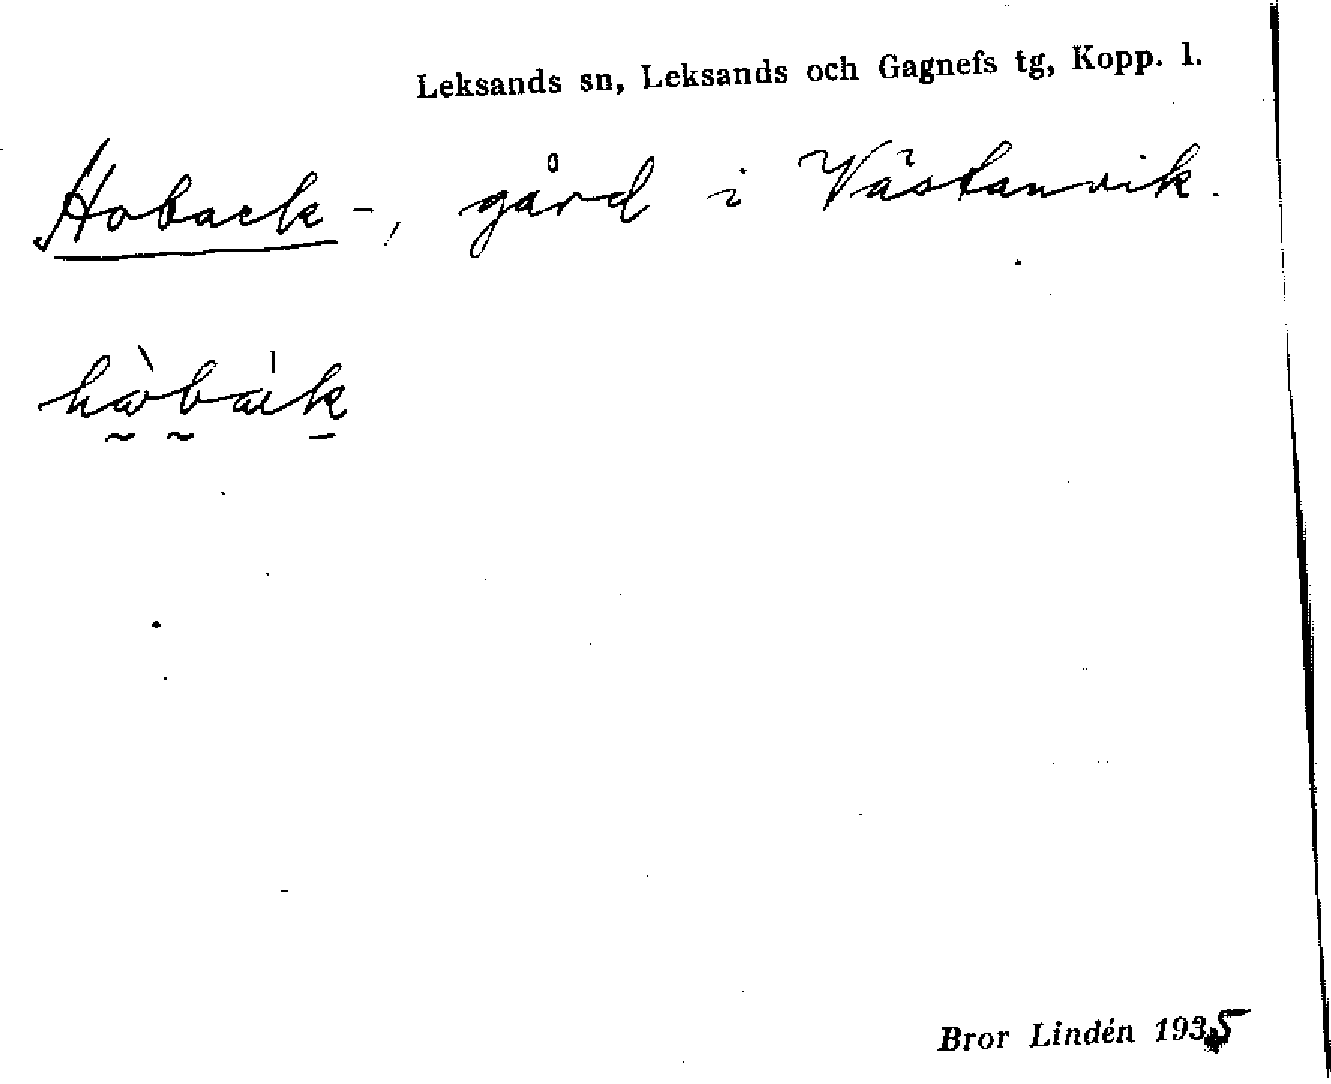 Leksands sn, Leksands och Gagnefs tg, Kopp. l.
Hoback-, gård i Västanvik.
hòbák
Bror Lindén 1935